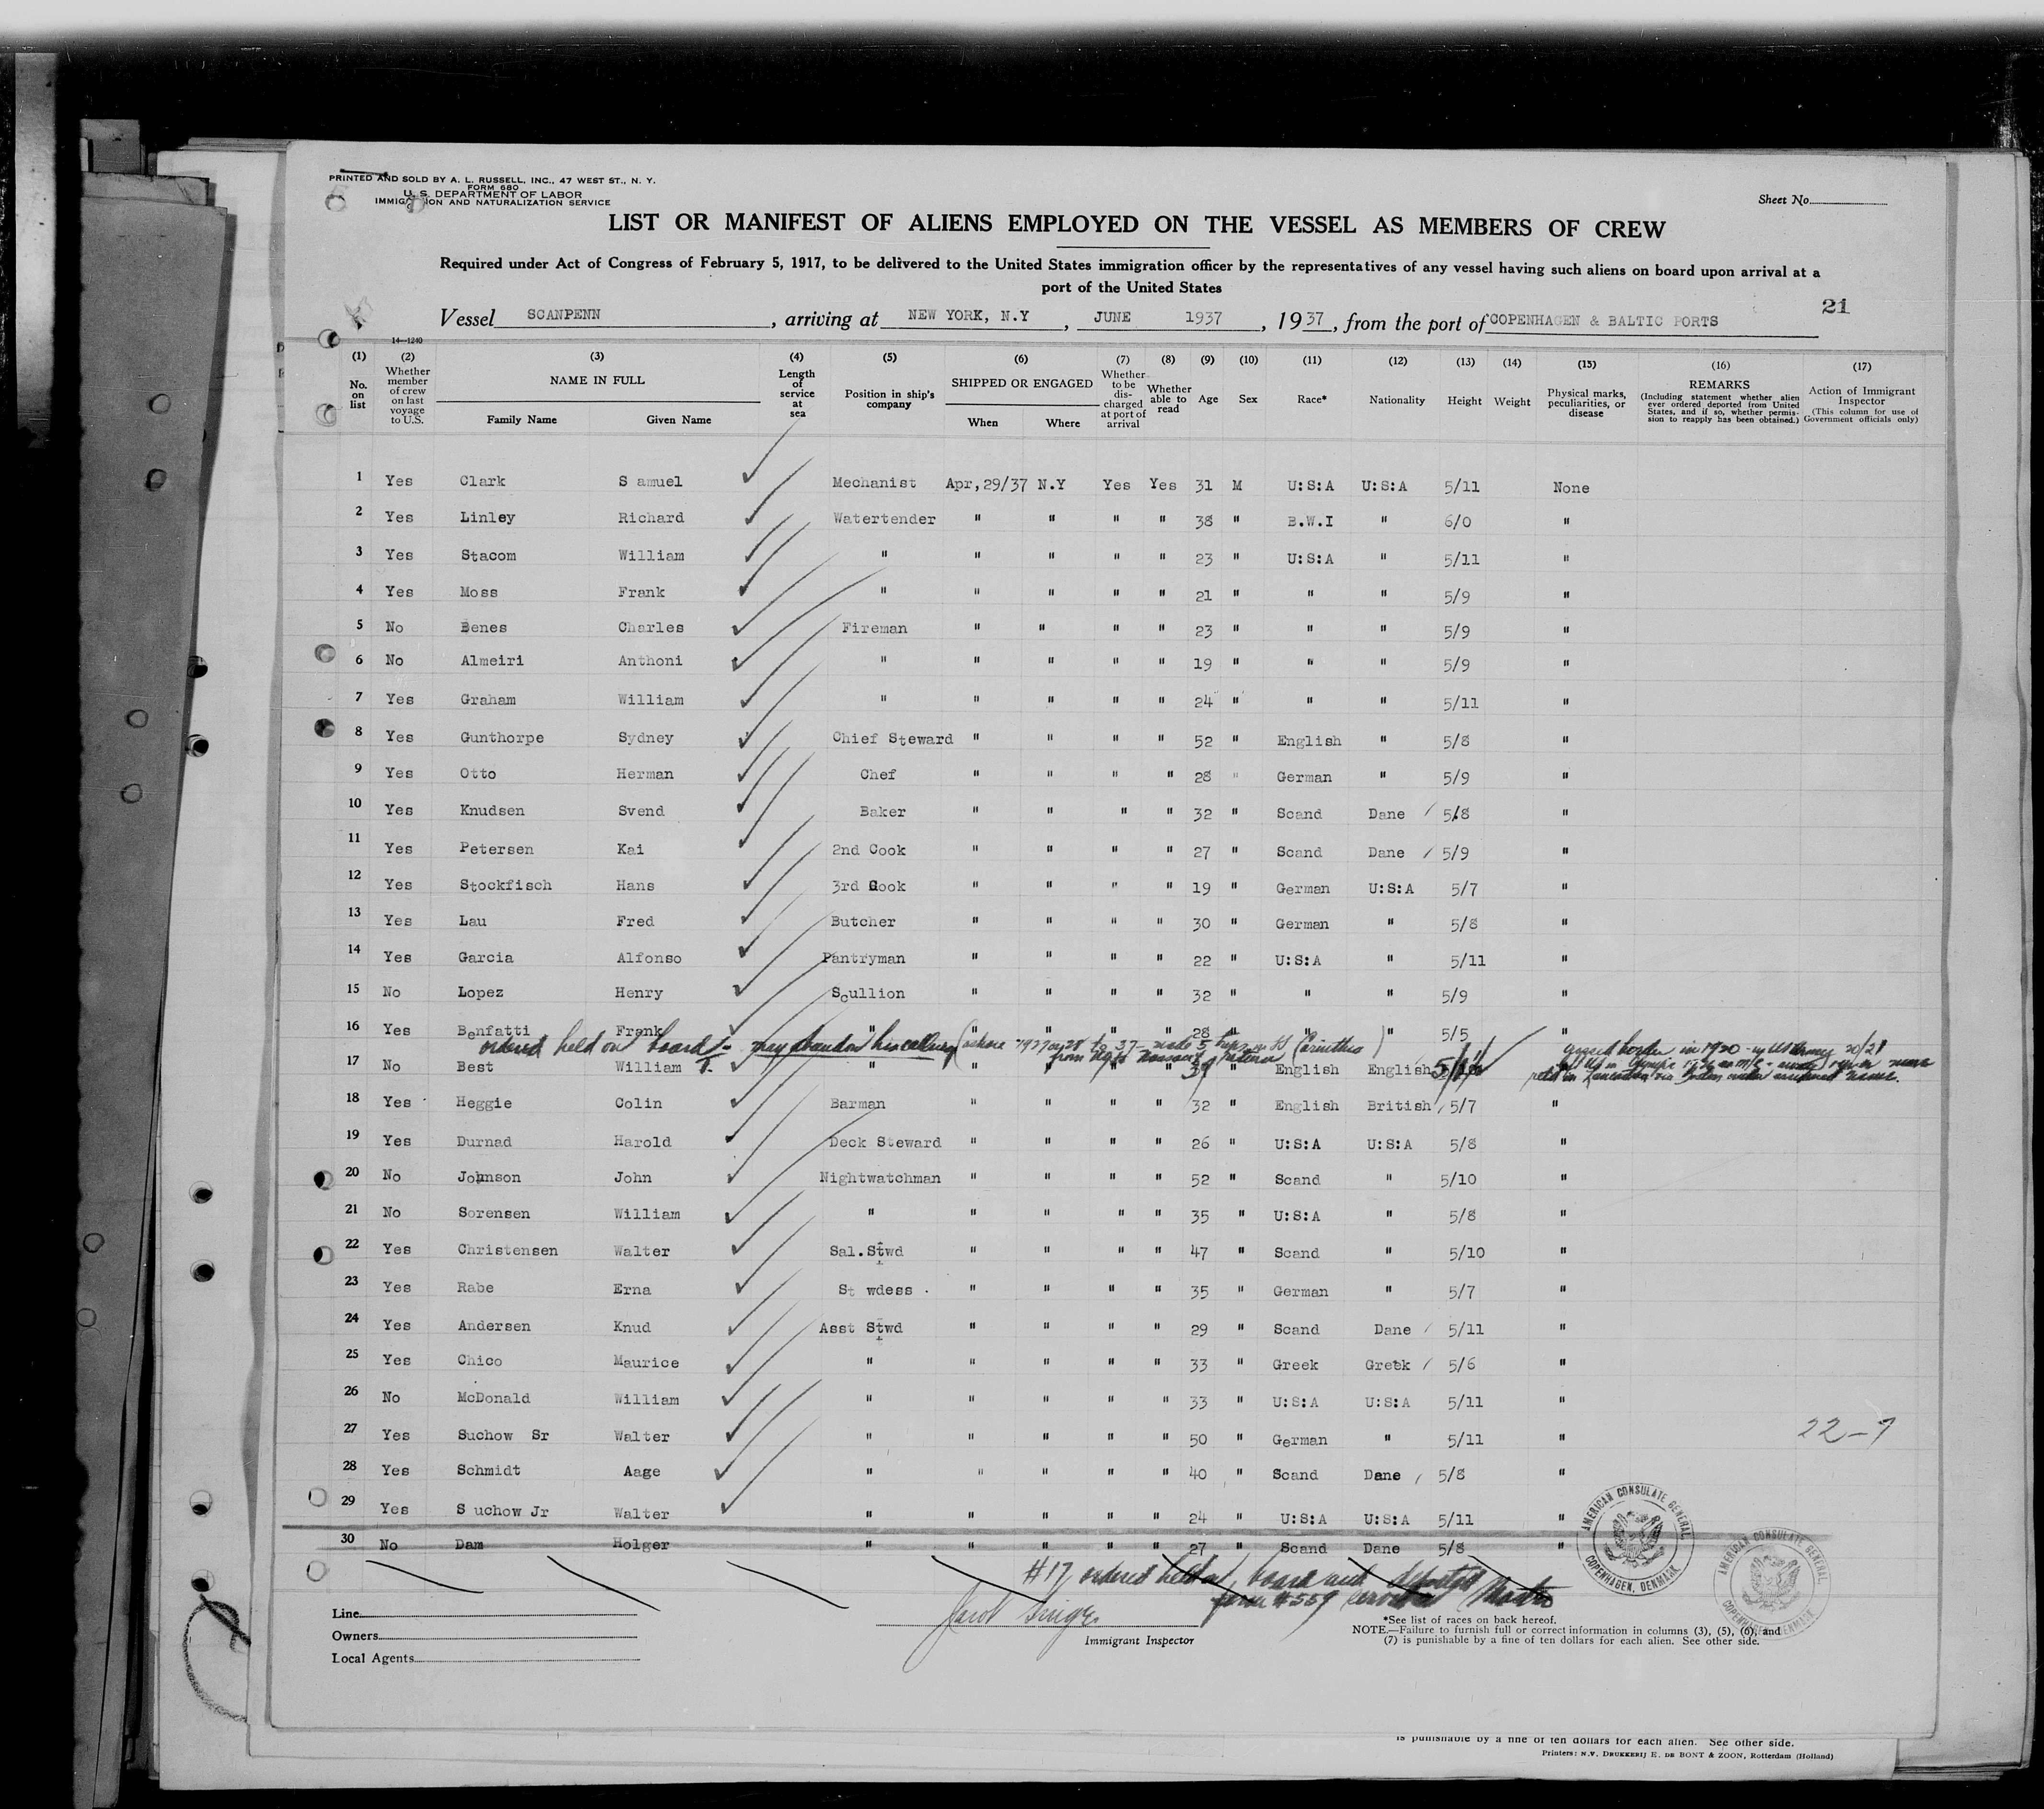 PRINTED AND SOLD BY A. L. RUSSELL, INC., 47 WEST ST., N. Y.
FORM 680
U. S. DEPARTMENT OF LABOR
IMMIGRATION AND NATURALIZATION SERVICE
Sheet No.
LIST OR MANIFEST OF ALIENS EMPLOYED ON THE VESSEL AS MEMBERS OF CREW
Required under Act of Congress of February 5, 1917, to be delivered to the United States immigration officer by the representatives of any vessel having such aliens on board upon arrival at a
port of the United States
21
Vessel SCANPENN, arriving at NEW YORK, N.Y, JUNE 1937, 1937, from the port of COPENHAGEN & BALTIC PORTS
14—1240
(1) (2) (3) (4) (5) (6) (7) (8) (9) (10) (11) (12) (13) (14) (15) (16) (17)
No. on list
Whether member of crew on last voyage to U.S.
NAME IN FULL
Family Name Given Name
Length of service at sea
Position in ship's company
SHIPPED OR ENGAGED
When Where
Whether to be discharged at port of arrival
Whether able to read
Age Sex Race* Nationality Height Weight
Physical marks, peculiarities, or disease
REMARKS
(Including statement whether alien ever ordered deported from United States, and if so, whether permission to reapply has been obtained.)
Action of Immigrant Inspector
(This column for use of Government officials only)
1 Yes Clark S amuel Mechanist Apr,29/37 N.Y Yes Yes 31 M U:S:A U:S:A 5/11 None
2 Yes Linley Richard Watertender " " " " 38 " B.W.I " 6/0 "
3 Yes Stacom William " " " " " 23 " U:S:A " 5/11 "
4 Yes Moss Frank " " " " " 21 " " " 5/9 "
5 No Benes Charles Fireman " " " " 23 " " " 5/9 "
6 No Almeiri Anthoni " " " " " 19 " " " 5/9 "
7 Yes Graham William " " " " " 24 " " " 5/11 "
8 Yes Gunthorpe Sydney Chief Steward " " " " 52 " English " 5/8 "
9 Yes Otto Herman Chef " " " " 28 " German " 5/9 "
10 Yes Knudsen Svend Baker " " " " 32 " Scand Dane / 5/8 "
11 Yes Petersen Kai 2nd Cook " " " " 27 " Scand Dane / 5/9 "
12 Yes Stockfisch Hans 3rd Cook " " " " 19 " German U:S:A 5/7 "
13 Yes Lau Fred Butcher " " " " 30 " German " 5/8 "
14 Yes Garcia Alfonso Pantryman " " " " 22 " U:S:A " 5/11 "
15 No Lopez Henry Scullion " " " " 32 " " " 5/9 "
16 Yes Benfatti Frank " " " " " 28 " " " 5/5 "
ordered held on board - may abandon his calling
17 No Best William T. " " " " " 39 " English English
18 Yes Heggie Colin Barman " " " " 32 " English British / 5/7 "
19 Yes Durnad Harold Deck Steward " " " " 26 " U:S:A U:S:A 5/8 "
20 No Johnson John Nightwatchman " " " " 52 " Scand " 5/10 "
21 No Sorensen William " " " " " 35 " U:S:A " 5/8 "
22 Yes Christensen Walter Sal.Stwd " " " " 47 " Scand " 5/10 "
23 Yes Rabe Erna St wdess . " " " " 35 " German " 5/7 "
24 Yes Andersen Knud Asst Stwd " " " " 29 " Scand Dane / 5/11 "
25 Yes Chico Maurice " " " " " 33 " Greek Greek / 5/6 "
26 No McDonald William " " " " " 33 " U:S:A U:S:A 5/11 "
27 Yes Suchow Sr Walter " " " " " 50 " German " 5/11 "
22-7
28 Yes Schmidt Aage " " " " " 40 " Scand Dane / 5/8 "
29 Yes S uchow Jr Walter " " " " " 24 " U:S:A U:S:A 5/11 "
30 No Dam Holger " " " " " 27 " Scand Dane 5/8 "
AMERICAN CONSULATE GENERAL COPENHAGEN, DENMARK.
AMERICAN CONSULATE GENERAL COPENHAGEN, DENMARK
#17 ordered held on board and deported
form #559 served on Master
Line
Owners
Local Agents
Immigrant Inspector
*See list of races on back hereof.
NOTE.—Failure to furnish full or correct information in columns (3), (5), (6), and
(7) is punishable by a fine of ten dollars for each alien. See other side.
is punishable by a fine of ten dollars for each alien. See other side.
Printers: N.V. DRUKKERIJ E. DE BONT & ZOON, Rotterdam (Holland)